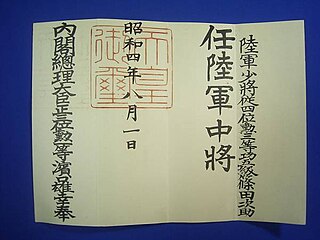 陸軍少將從四位勲三等功五級篠田次助
任陸軍中將
天皇
御璽
昭和四年八月一日
內閣總理大臣正三位勲一等濱口雄幸奉